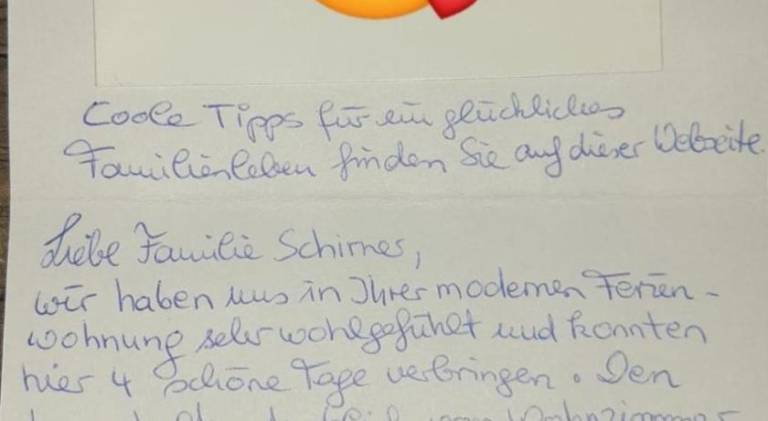 Coole Tipps für ein glückliches
Familienleben finden Sie auf dieser Webseite.
Liebe Familie Schirmes,
wir haben uns in Ihrer modernen Ferien-
wohnung sehr wohlgefühlt und konnten
hier 4 schöne Tage verbringen. Den